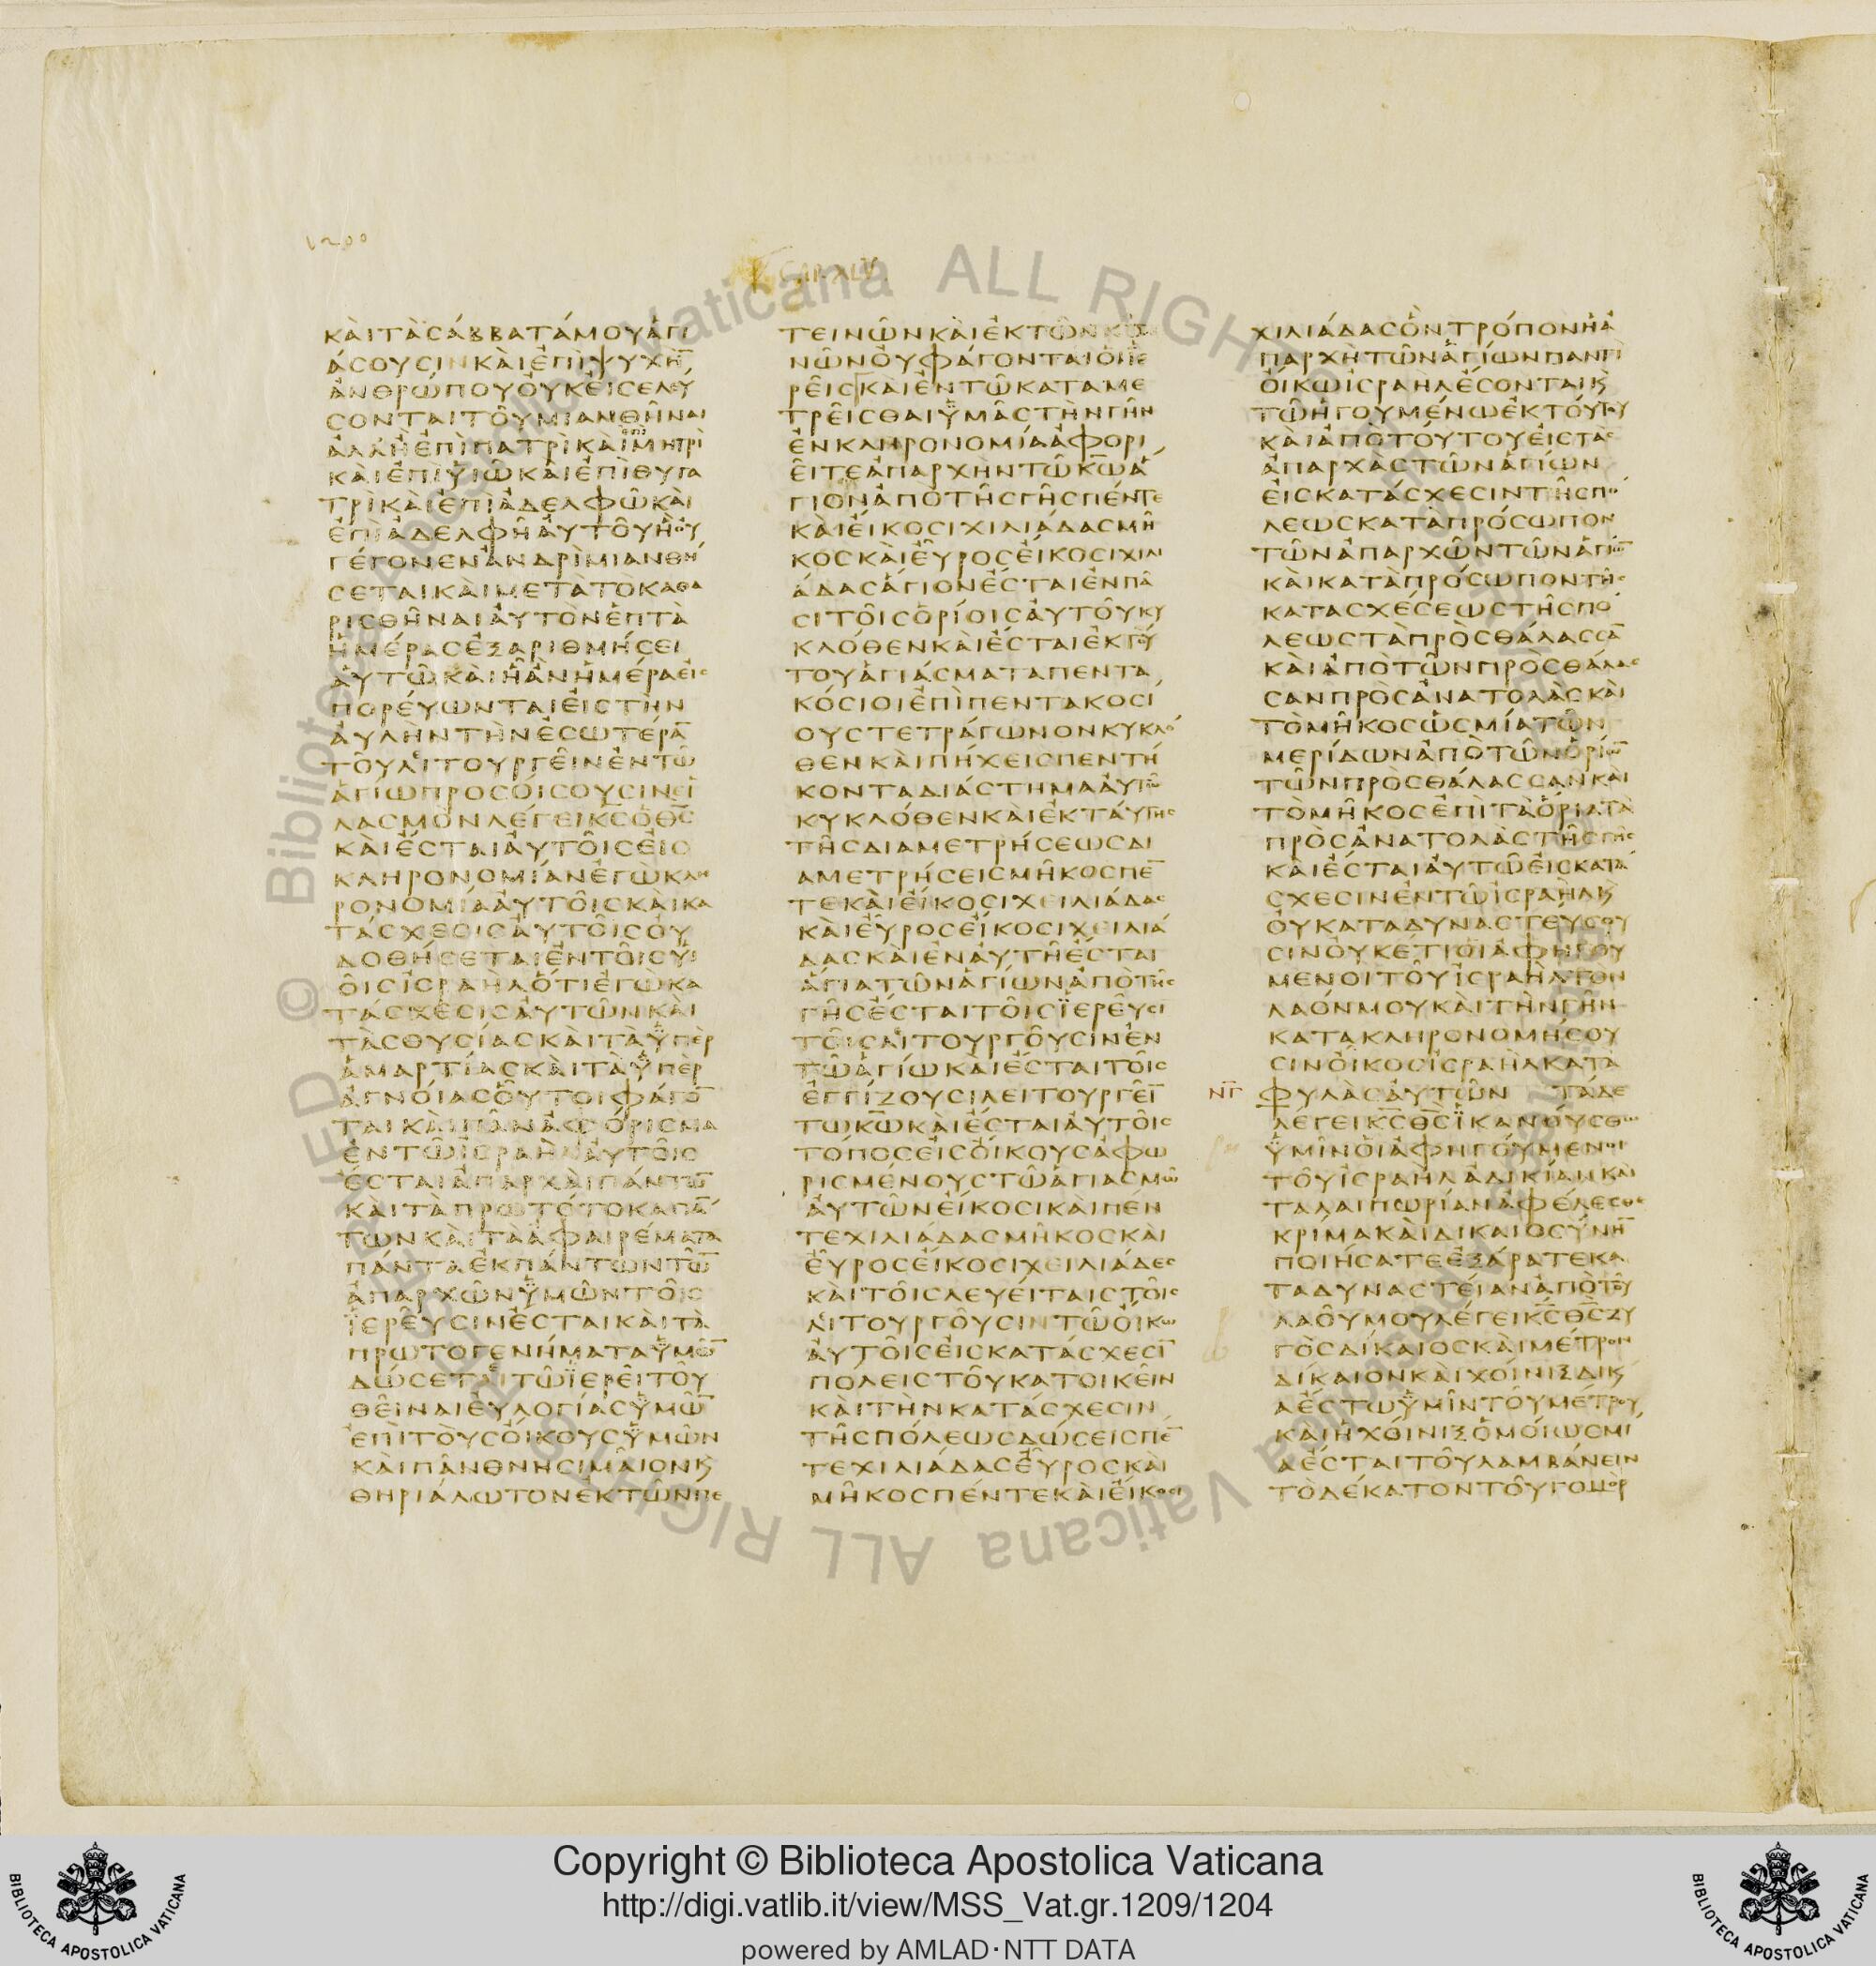 1200
CAP. XLV.
ΚΑΙΤΑСΑΒΒΑΤΑΜΟΥΑΓΙ
ΑСΟΥСΙΝΚΑΙΕΠΙΨΥΧΗ̅
ΑΝΘΡΩΠΟΥΟΥΚΕΙСΕΛΕΥ
СΟΝΤΑΙΤΟΥΜΙΑΝΘΗΝΑΙ
ΑΛΛΗΕΠΙΠΑΤΡΙΚΑΙΜΗΤΡΙ
ΚΑΙΕΠΙΥΙΩΚΑΙΕΠΙΘΥΓΑ
ΤΡΙΚΑΙΕΠΙΑΔΕΛΦΩΚΑΙ
ΕΠΙΑΔΕΛΦΗΑΥΤΟΥΗΟΥ
ΓΕΓΟΝΕΝΑΝΔΡΙΜΙΑΝΘΗ
СΕΤΑΙΚΑΙΜΕΤΑΤΟΚΑΘΑ
ΡΙСΘΗΝΑΙΑΥΤΟΝΕΠΤΑ
ΗΜΕΡΑСΕΞΑΡΙΘΜΗСΕΙ
ΑΥΤΩΚΑΙΗΑΝΗΜΕΡΑΕΙС
ΠΟΡΕΥΩΝΤΑΙΕΙСΤΗΝ
ΑΥΛΗΝΤΗΝΕСΩΤΕΡΑ̅
ΤΟΥΛΙΤΟΥΡΓΕΙΝΕΝΤΩ
ΑΓΙΩΠΡΟСΟΙСΟΥСΙΝΕΙ
ΛΑСΜΟΝΛΕΓΕΙΚ̅С̅ΟΘ̅С̅
ΚΑΙΕСΤΑΙΑΥΤΟΙСΕΙС
ΚΛΗΡΟΝΟΜΙΑΝΕΓΩΚΛΗ
ΡΟΝΟΜΙΑΑΥΤΟΙСΚΑΙΚΑ
ΤΑСΧΕСΙСΑΥΤΟΙСΟΥ
ΔΟΘΗСΕΤΑΙΕΝΤΟΙСΥΙ
ΟΙСΙСΡΑΗΛΟΤΙΕΓΩΚΑ
ΤΑСΧΕСΙСΑΥΤΩΝΚΑΙ
ΤΑСΘΥСΙΑСΚΑΙΤΑΥΠΕΡ
ΑΜΑΡΤΙΑСΚΑΙΤΑΥΠΕΡ
ΑΓΝΟΙΑСΟΥΤΟΙΦΑΓΟ̅
ΤΑΙΚΑΙΠΑΝΑΦΟΡΙСΜΑ
ΕΝΤΩΙСΡΑΗΛΑΥΤΟΙС
ΕСΤΑΙΑΠΑΡΧΑΙΠΑΝΤΩ̅
ΚΑΙΤΑΠΡΩΤΟΤΟΚΑΠΑ̅
ΤΩΝΚΑΙΤΑΑΦΑΙΡΕΜΑΤΑ
ΠΑΝΤΑΕΚΠΑΝΤΩΝΤΩ̅
ΑΠΑΡΧΩΝΥΜΩΝΤΟΙС
ΙΕΡΕΥСΙΝΕСΤΑΙΚΑΙΤΑ
ΠΡΩΤΟΓΕΝΗΜΑΤΑΥΜΩ̅
ΔΩСΕΤΑΙΤΩΙΕΡΕΙΤΟΥ
ΘΕΙΝΑΙΕΥΛΟΓΙΑСΥΜΩ̅
ΕΠΙΤΟΥСΟΙΚΟΥСΥΜΩΝ
ΚΑΙΠΑΝΘΝΗСΙΜΑΙΟΝϏ
ΘΗΡΙΑΛΩΤΟΝΕΚΤΩΝΠΕ
ΤΕΙΝΩΝΚΑΙΕΚΤΩΝΚΤΗ
ΝΩΝΟΥΦΑΓΟΝΤΑΙΟΙΙΕ
ΡΕΙСΚΑΙΕΝΤΩΚΑΤΑΜΕ
ΤΡΕΙСΘΑΙΥΜΑСΤΗΝΓΗΝ
ΕΝΚΛΗΡΟΝΟΜΙΑΑΦΟΡΙ
ΕΙΤΕΑΠΑΡΧΗΝΤΩΚ̅Ω̅Α
ΓΙΟΝΑΠΟΤΗСΓΗСΠΕΝΤΕ
ΚΑΙΕΙΚΟСΙΧΙΛΙΑΔΑСΜΗ
ΚΟСΚΑΙΕΥΡΟСΕΙΚΟСΙΧΙΛΙ
ΑΔΑСΑΓΙΟΝΕСΤΑΙΕΝΠΑ
СΙΤΟΙСΟΡΙΟΙСΑΥΤΟΥΚΥ
ΚΛΟΘΕΝΚΑΙΕСΤΑΙΕΚΤΟΥ
ΤΟΥΑΓΙΑСΜΑΤΑΠΕΝΤΑ
ΚΟСΙΟΙΕΠΙΠΕΝΤΑΚΟСΙ
ΟΥСΤΕΤΡΑΓΩΝΟΝΚΥΚΛΟ
ΘΕΝΚΑΙΠΗΧΕΙСΠΕΝΤΗ
ΚΟΝΤΑΔΙΑСΤΗΜΑΑΥΤΩ
ΚΥΚΛΟΘΕΝΚΑΙΕΚΤΑΥΤΗС
ΤΗСΔΙΑΜΕΤΡΗСΕΩСΔΙ
ΑΜΕΤΡΗСΕΙСΜΗΚΟСΠΕ̅
ΤΕΚΑΙΕΙΚΟСΙΧΕΙΛΙΑΔΑС
ΚΑΙΕΥΡΟСΕΙΚΟСΙΧΕΙΛΙΑ
ΔΑСΚΑΙΕΝΑΥΤΗΕСΤΑΙ
ΑΓΙΑΤΩΝΑΓΙΩΝΑΠΟΤΗС
ΓΗСΕСΤΑΙΤΟΙСΙΕΡΕΥСΙ
ΤΟΙСΛΙΤΟΥΡΓΟΥСΙΝΕΝ
ΤΩΑΓΙΩΚΑΙΕСΤΑΙΤΟΙС
ΕΓΓΙΖΟΥСΙΛΕΙΤΟΥΡΓΕΙ̅
ΤΩΚ̅Ω̅ΚΑΙΕСΤΑΙΑΥΤΟΙС
ΤΟΠΟСΕΙСΟΙΚΟΥСΑΦΩ
ΡΙСΜΕΝΟΥСΤΩΑΓΙΑСΜΩ
ΑΥΤΩΝΕΙΚΟСΙΚΑΙΠΕΝ
ΤΕΧΙΛΙΑΔΑСΜΗΚΟСΚΑΙ
ΕΥΡΟСΕΙΚΟСΙΧΕΙΛΙΑΔΕС
ΚΑΙΤΟΙСΛΕΥΕΙΤΑΙСΤΟΙС
ΛΙΤΟΥΡΓΟΥСΙΝΤΩΟΙΚΩ
ΑΥΤΟΙСΕΙСΚΑΤΑСΧΕСΙ̅
ΠΟΛΕΙСΤΟΥΚΑΤΟΙΚΕΙΝ
ΚΑΙΤΗΝΚΑΤΑСΧΕСΙΝ
ΤΗСΠΟΛΕΩСΔΩСΕΙСΠΕ̅
ΤΕΧΙΛΙΑΔΑСΕΥΡΟСΚΑΙ
ΜΗΚΟСΠΕΝΤΕΚΑΙΕΙΚΟСΙ
ΧΙΛΙΑΔΑСΟΝΤΡΟΠΟΝΗΑ
ΠΑΡΧΗΤΩΝΑΓΙΩΝΠΑΝΤΙ
ΟΙΚΩΙСΡΑΗΛΕСΟΝΤΑΙϏ
ΤΩΗΓΟΥΜΕΝΩΕΚΤΟΥΤΟΥ
ΚΑΙΑΠΟΤΟΥΤΟΥΕΙСΤΑС
ΑΠΑΡΧΑСΤΩΝΑΓΙΩΝ
ΕΙСΚΑΤΑСΧΕСΙΝΤΗСΠΟ
ΛΕΩСΚΑΤΑΠΡΟСΩΠΟΝ
ΤΩΝΑΠΑΡΧΩΝΤΩΝΑΓΙΩ̅
ΚΑΙΚΑΤΑΠΡΟСΩΠΟΝΤΗС
ΚΑΤΑСΧΕСΕΩСΤΗСΠΟ
ΛΕΩСΤΑΠΡΟСΘΑΛΑССΑ̅
ΚΑΙΑΠΟΤΩΝΠΡΟСΘΑΛΑС
СΑΝΠΡΟСΑΝΑΤΟΛΑСΚΑΙ
ΤΟΜΗΚΟСΩСΜΙΑΤΩΝ
ΜΕΡΙΔΩΝΑΠΟΤΩΝΟΡΙΩ̅
ΤΩΝΠΡΟСΘΑΛΑССΑΝΚΑΙ
ΤΟΜΗΚΟСΕΠΙΤΑΟΡΙΑΤΑ
ΠΡΟСΑΝΑΤΟΛΑСΤΗСΓΗС
ΚΑΙΕСΤΑΙΑΥΤΩΕΙСΚΑΤΑ
СΧΕСΙΝΕΝΤΩΙСΡΑΗΛϏ
ΟΥΚΑΤΑΔΥΝΑСΤΕΥСΟΥ
СΙΝΟΥΚΕΤΙΟΙΑΦΗΓΟΥ
ΜΕΝΟΙΤΟΥΙСΡΑΗΛΤΟΝ
ΛΑΟΝΜΟΥΚΑΙΤΗΝΓΗΝ
ΚΑΤΑΚΛΗΡΟΝΟΜΗСΟΥ
СΙΝΟΙΚΟСΙСΡΑΗΛΚΑΤΑ
ΝΓ ΦΥΛΑСΑΥΤΩΝ ΤΑΔΕ
ΛΕΓΕΙΚ̅С̅Θ̅С̅ΙΚΑΝΟΥСΘΩ
ΥΜΙΝΟΙΑΦΗΓΟΥΜΕΝΟΙ
ΤΟΥΙСΡΑΗΛΑΔΙΚΙΑΝΚΑΙ
ΤΑΛΑΙΠΩΡΙΑΝΑΦΕΛΕСΘΕ
ΚΡΙΜΑΚΑΙΔΙΚΑΙΟСΥΝΗ̅
ΠΟΙΗСΑΤΕΕΞΑΡΑΤΕΚΑ
ΤΑΔΥΝΑСΤΕΙΑΝΑΠΟΤΟΥ
ΛΑΟΥΜΟΥΛΕΓΕΙΚ̅С̅Θ̅С̅ΖΥ
ΓΟСΔΙΚΑΙΟСΚΑΙΜΕΤΡΟΝ
ΔΙΚΑΙΟΝΚΑΙΧΟΙΝΙΞΔΙΚ
ΑΕСΤΩΥΜΙΝΤΟΥΜΕΤΡΟΥ
ΚΑΙΗΧΟΙΝΙΞΟΜΟΙΩСΜΙ
ΑΕСΤΑΙΤΟΥΛΑΜΒΑΝΕΙΝ
ΤΟΔΕΚΑΤΟΝΤΟΥΓΟΜΟΡ
© Biblioteca Apostolica Vaticana ALL RIGHTS RESERVED
Copyright © Biblioteca Apostolica Vaticana
http://digi.vatlib.it/view/MSS_Vat.gr.1209/1204
powered by AMLAD·NTT DATA
BIBLIOTECA APOSTOLICA VATICANA
BIBLIOTECA APOSTOLICA VATICANA